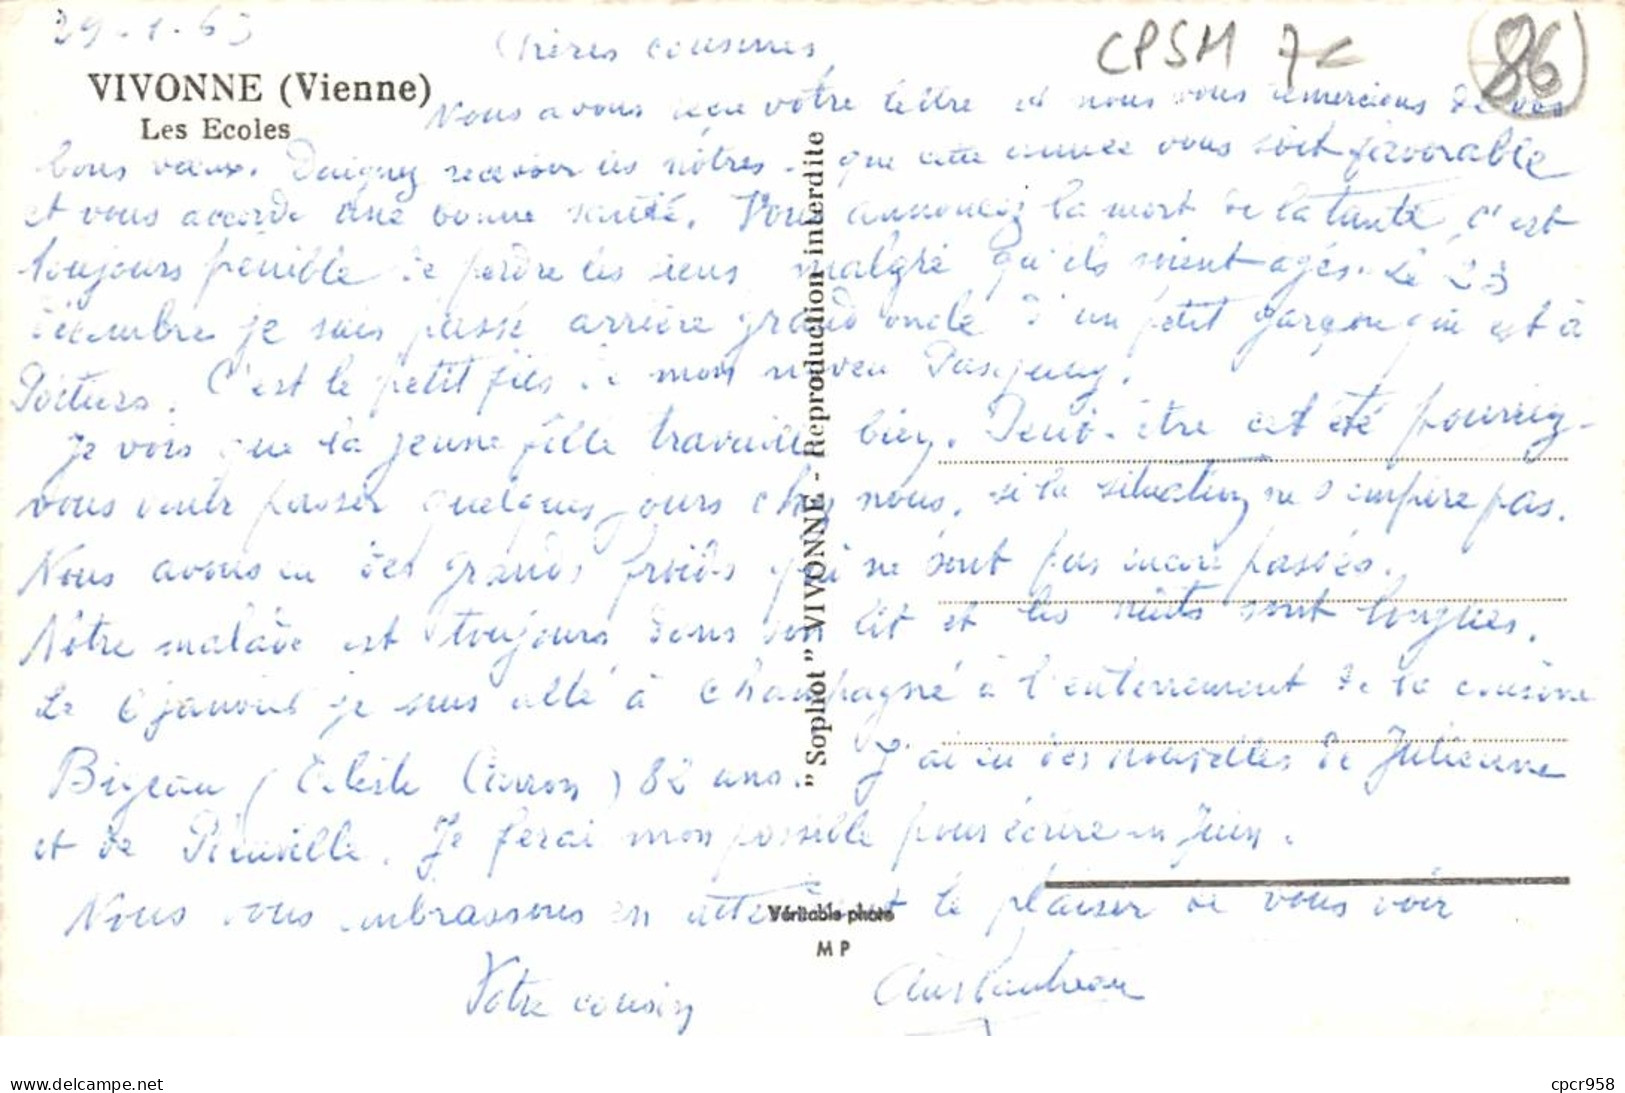 29-1-63
Chères cousines
CPSM 7€
86
VIVONNE (Vienne)
Les Ecoles
Nous avons reçu votre lettre et nous vous remercions de vos
bons vœux. Daignez recevoir les nôtres. que cette année vous soit favorable
et vous accorde une bonne santé. Vous annoncez la mort de la tante, c'est
toujours pénible de perdre les siens malgré qu'ils soient agés. Le 23
décembre je suis passé arrière grand oncle d'un petit garçon qui est à
Poitiers. C'est le petit fils de mon neveu
Je vois que la jeune fille travaille bien. Peut-être cet été pourriez-
vous venir passer quelques jours chez nous, si la situation ne s'empire pas.
Nous avons eu des grands froids qui ne sont pas encore passés.
Nôtre malade est toujours dans son lit et les nuits sont longues.
Le 6 janvier je suis allé à Champagné à l'enterrement de la cousine
Bigeau (Céleste ) 82 ans. J'ai eu des nouvelles de Julienne
et de . Je ferai mon possible pour écrire en Juin.
Nous vous embrassons en attendant le plaisir de vous voir
Votre cousin
"Sophot" VIVONNE - Reproduction interdite
Véritable photo
M P
www.delcampe.net
cpcr958